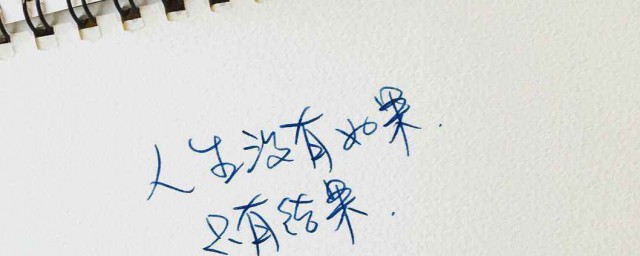 人生没有如果.
只有结果.